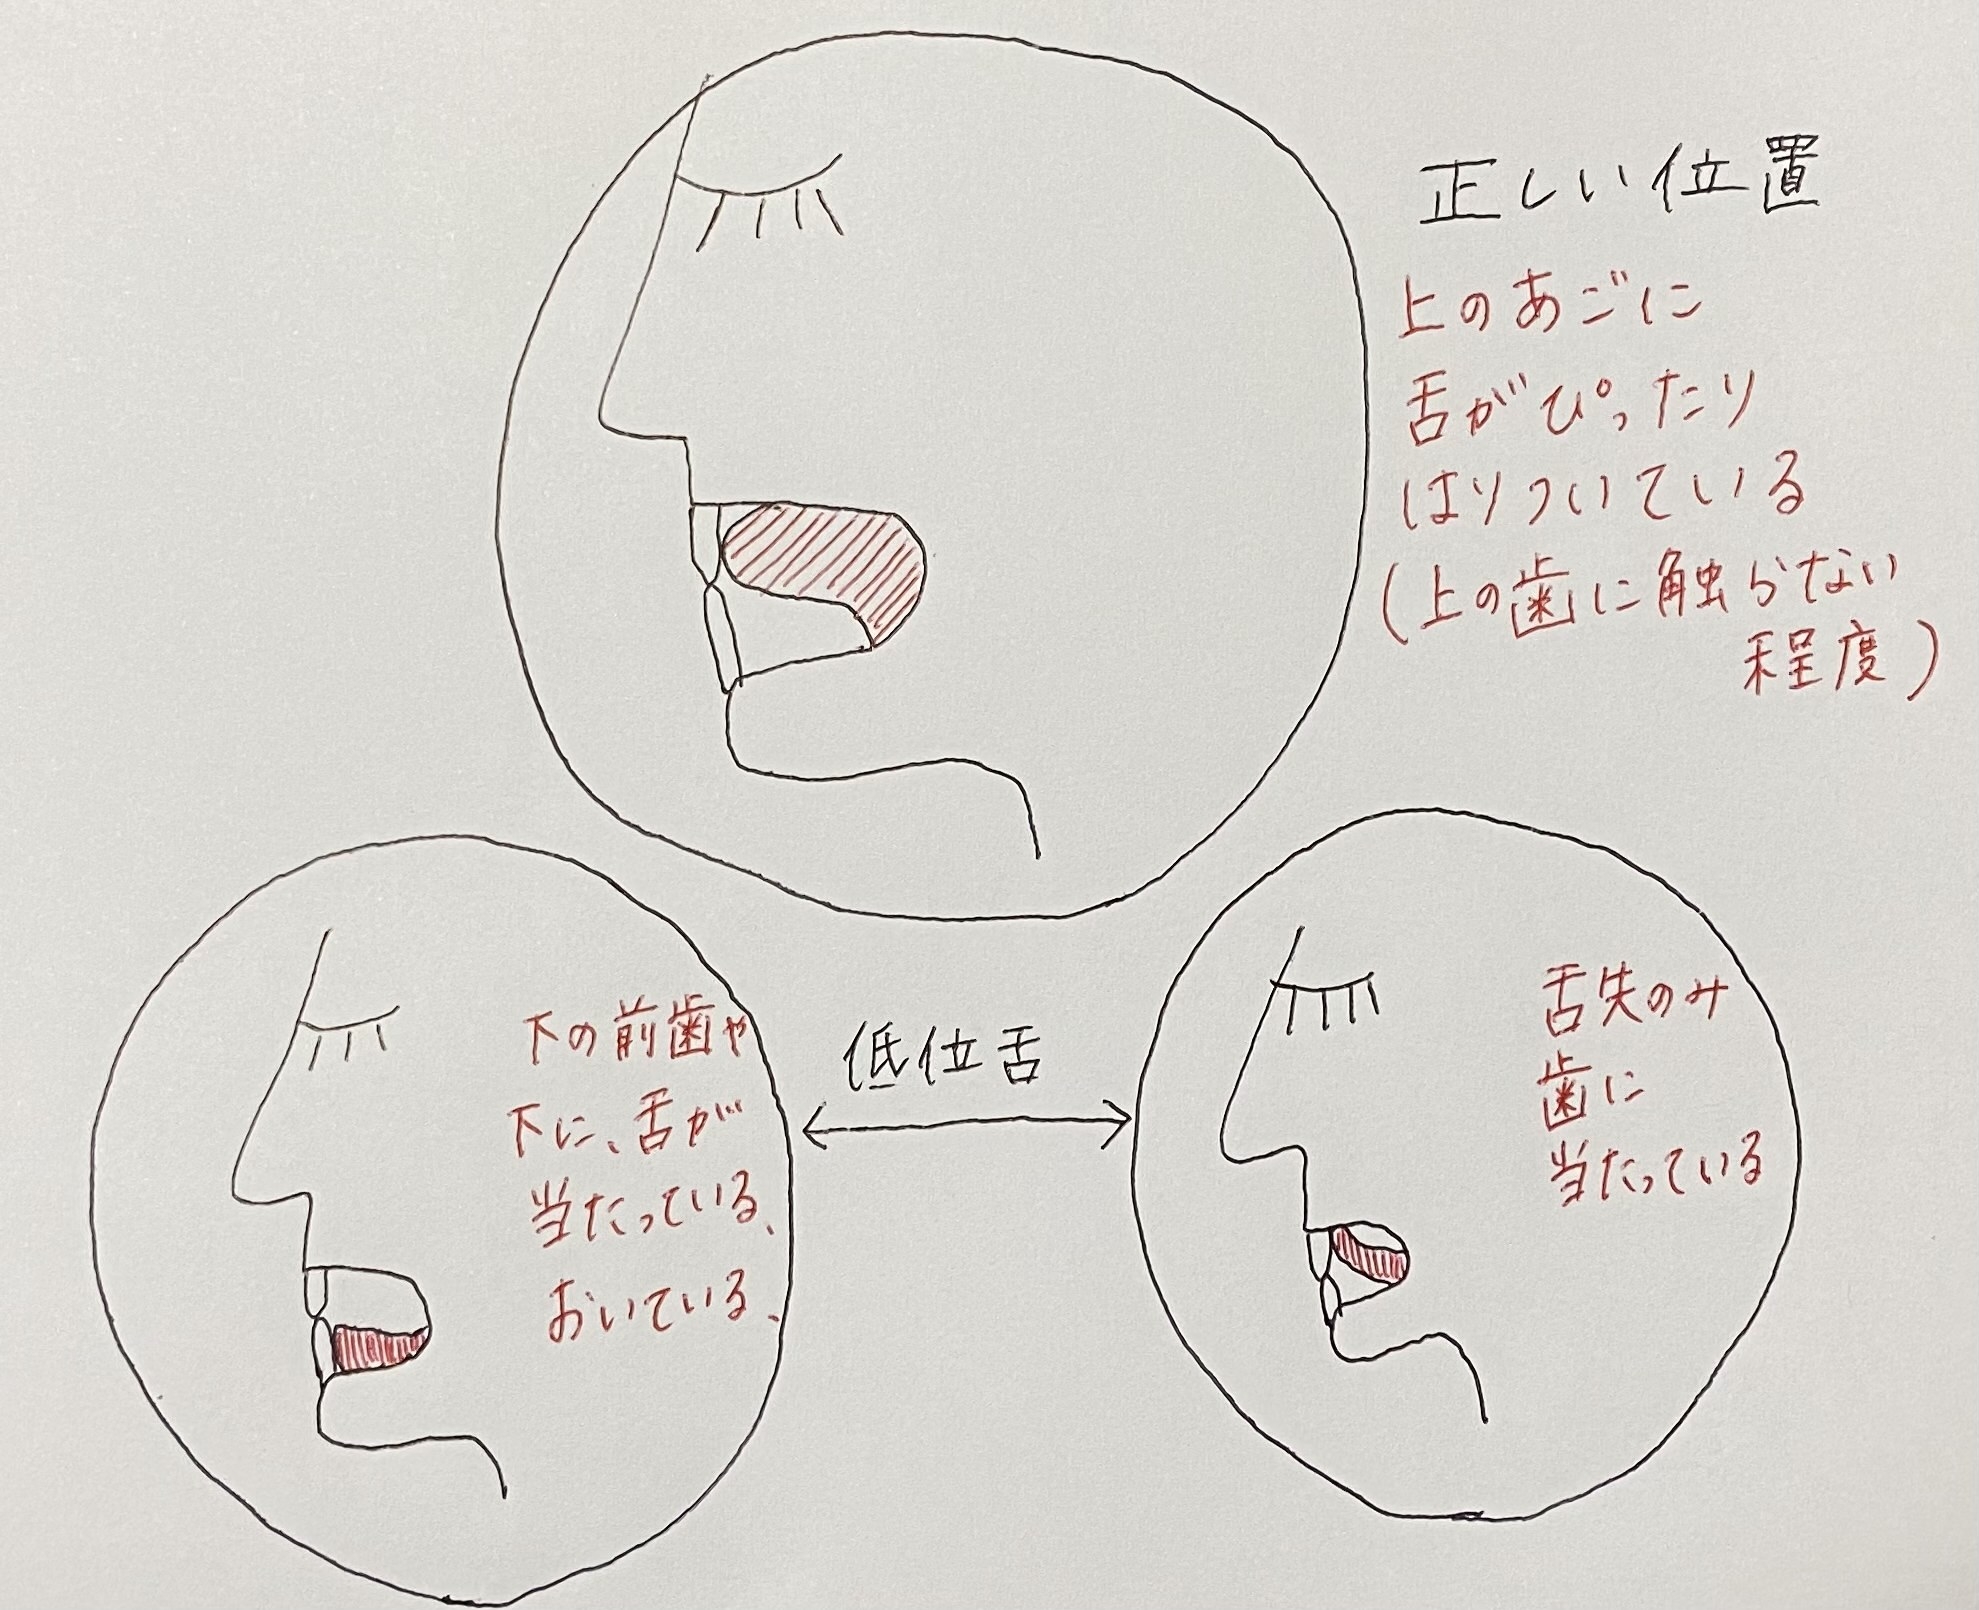 正しい位置
上のあごに
舌がぴったり
はりついている
(上の歯に触らない
程度)
下の前歯や
下に、舌が
当たっている、
おいている、
低位舌
舌先のみ
歯に
当たっている